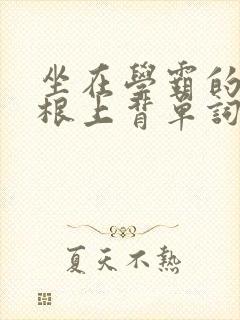 坐在學霸的
根上背單詞
夏天不熱